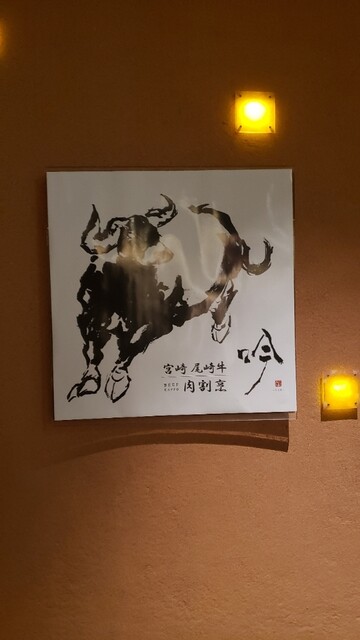 宮崎 尾崎牛
BEEF
肉割烹
吟